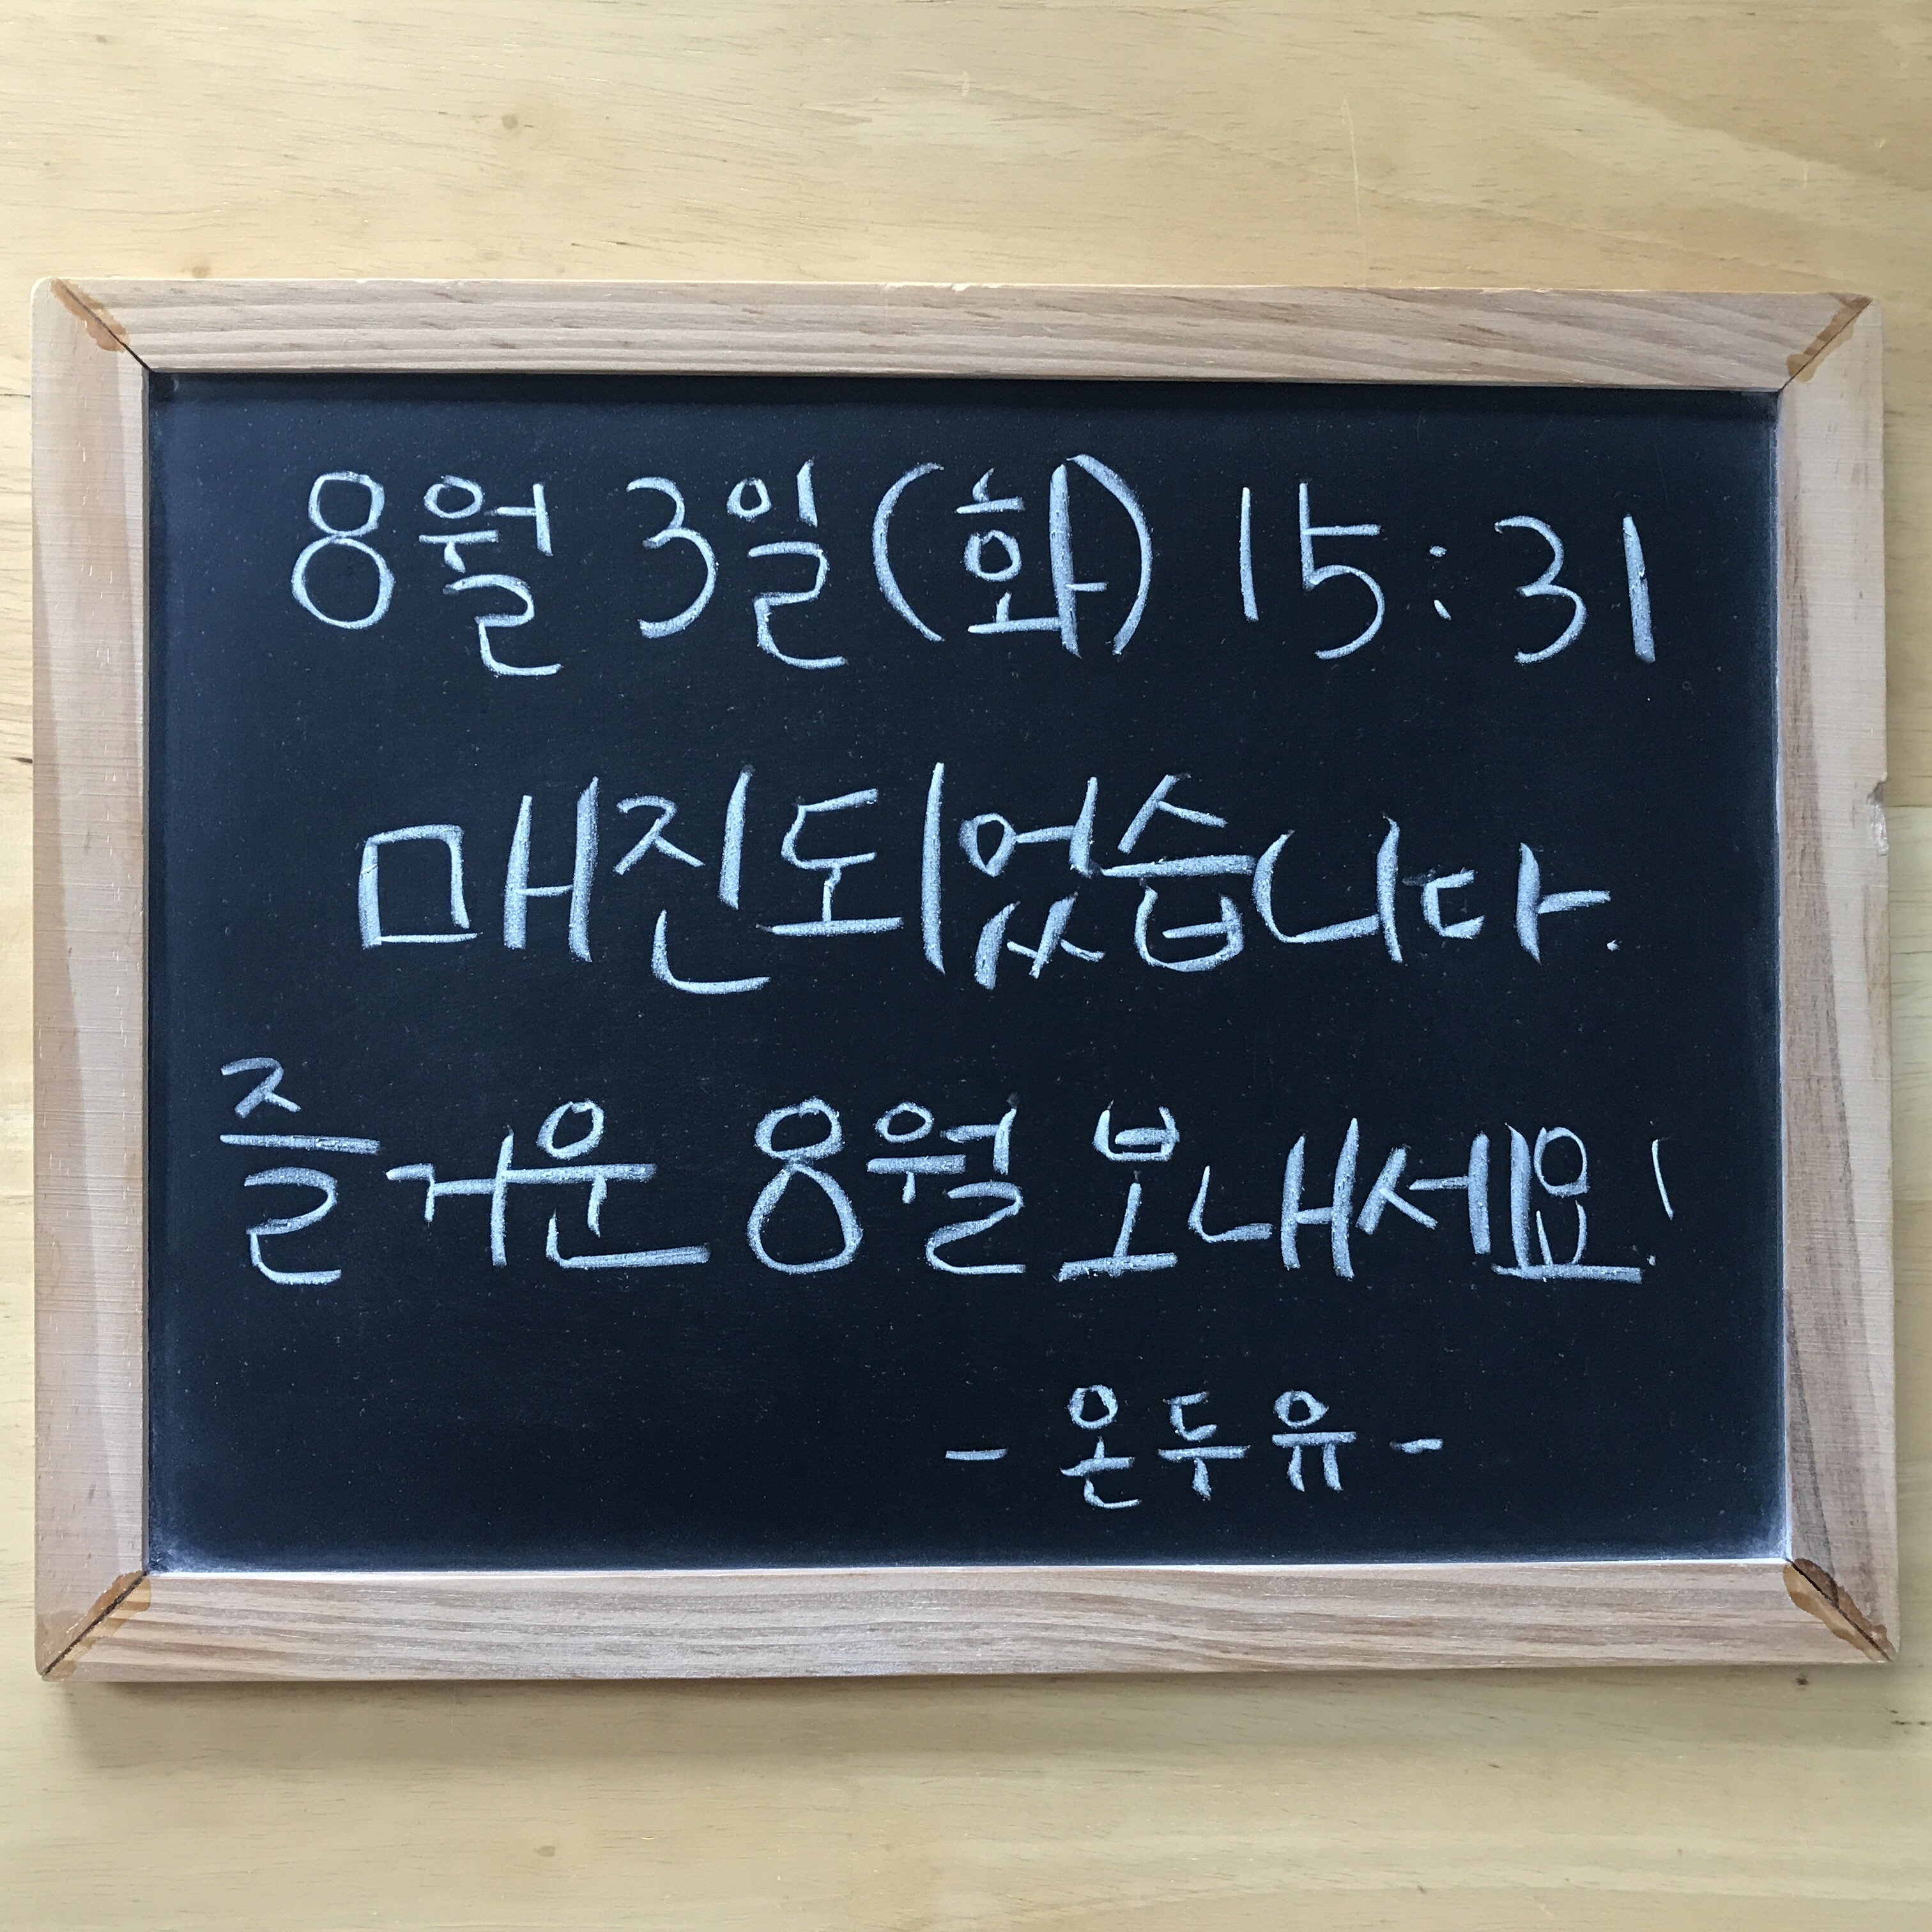 8월 3일(화) 15:31
매진되었습니다.
즐거운 8월 보내세요!
- 온두유 -